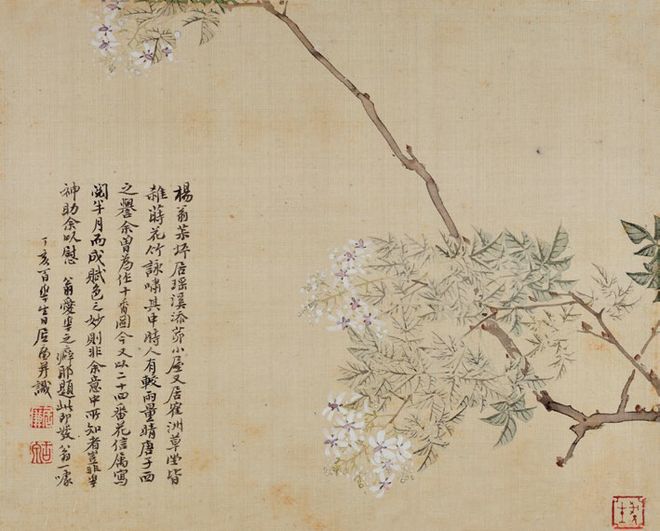 楊翁菉坪居瑶溪添茆小屋又居寉洲草堂皆
雜蒔花竹詠嘯其中時人有較雨量晴唐子西
之譽余曾為作十香圖今又以二十四番花信属寫
閱半月而成賦色之妙則非余意中所知者豈非華
神助余以慰 翁愛華之癖耶題此即發 翁一噱
丁亥百華生日居廉并識